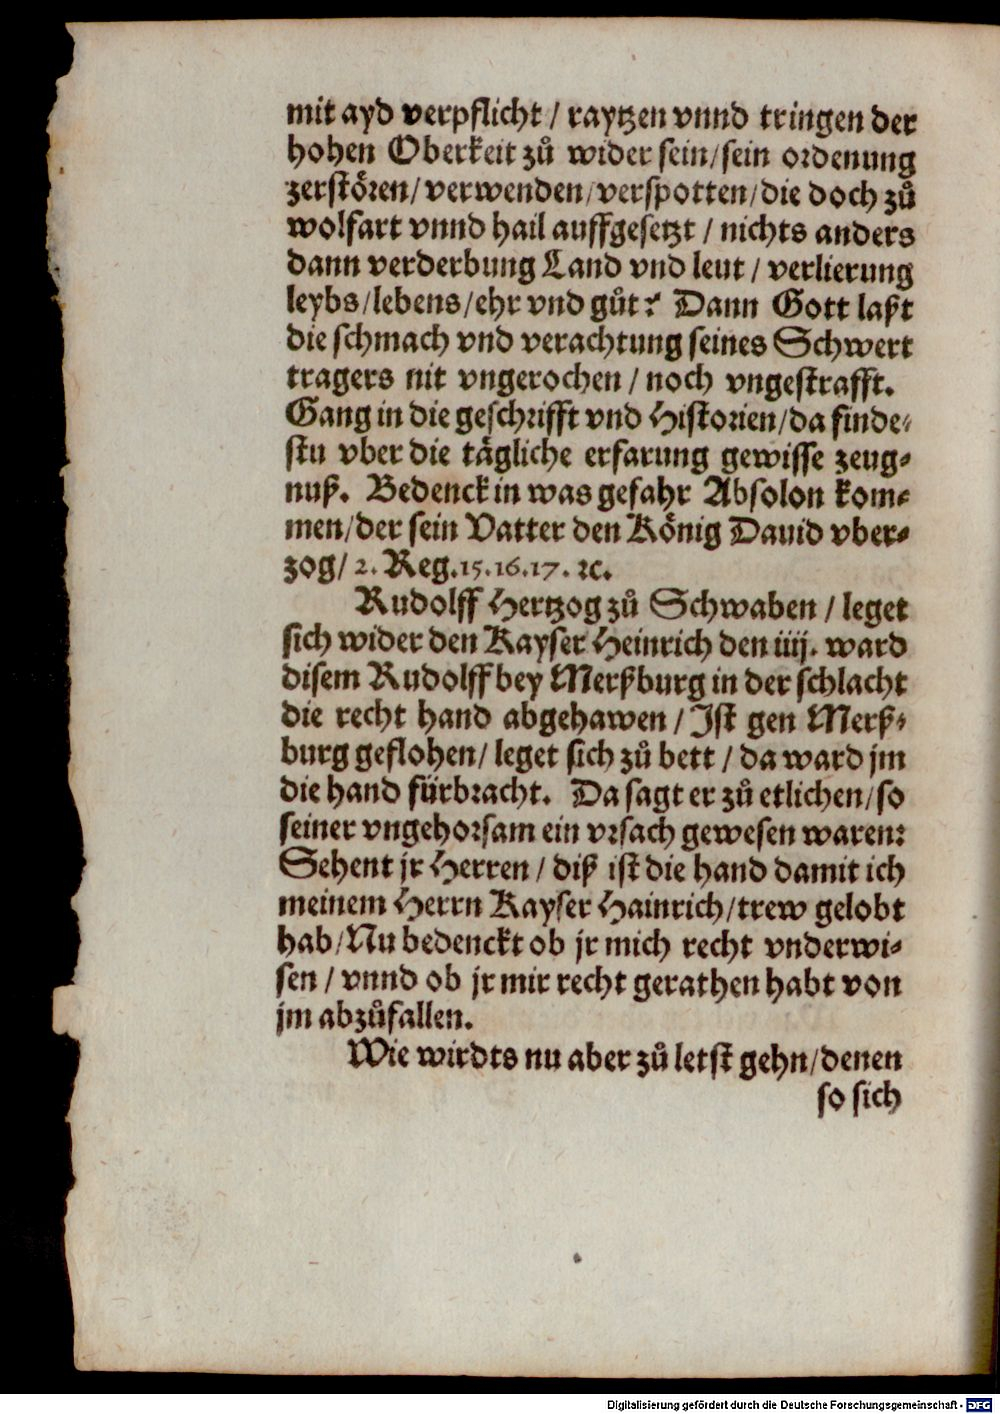 mit ayd verpflicht / raytzen vnnd tringen der
hohen Oberkeit zů wider sein/sein ordenung
zerstören/verwenden/verspotten/die doch zů
wolfart vnnd hail auffgesetzt / nichts anders
dann verderbung Land vnd leut / verlierung
leybs/lebens/ehr vnd gůt? Dann Gott laßt
die schmach vnd verachtung seines Schwert
tragers nit vngerochen / noch vngestrafft.
Gang in die geschrifft vnd Historien/da finde-
stu vber die tägliche erfarung gewisse zeug-
nuß. Bedenck in was gefahr Absolon kom-
men/der sein Vatter den König Dauid vber-
zog/ 2. Reg.15.16.17. ꝛc.
Rudolff Hertzog zů Schwaben / leget
sich wider den Kayser Heinrich den iiij. ward
disem Rudolff bey Merßburg in der schlacht
die recht hand abgehawen / Ist gen Merß-
burg geflohen/ leget sich zů bett / da ward jm
die hand fürbracht. Da sagt er zů etlichen/so
seiner vngehorsam ein vrsach gewesen waren:
Sehent jr Herren / diß ist die hand damit ich
meinem Herrn Kayser Hainrich/trew gelobt
hab/Nu bedenckt ob jr mich recht vnderwi-
sen / vnnd ob jr mir recht gerathen habt von
jm abzůfallen.
Wie wirdts nu aber zů letst gehn/denen
so sich
Digitalisierung gefördert durch die Deutsche Forschungsgemeinschaft - DFG